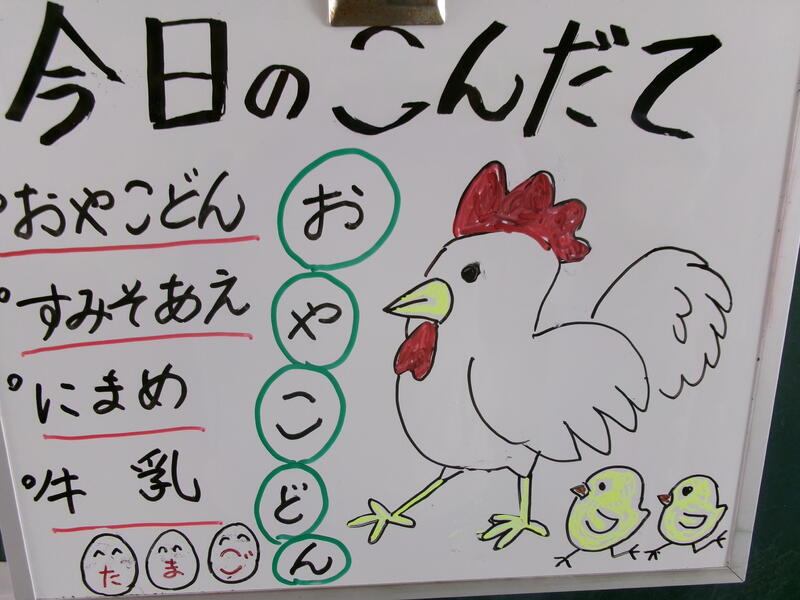 今日のこんだて
おやこどん
すみそあえ
にまめ
牛乳
おやこどん
たまご